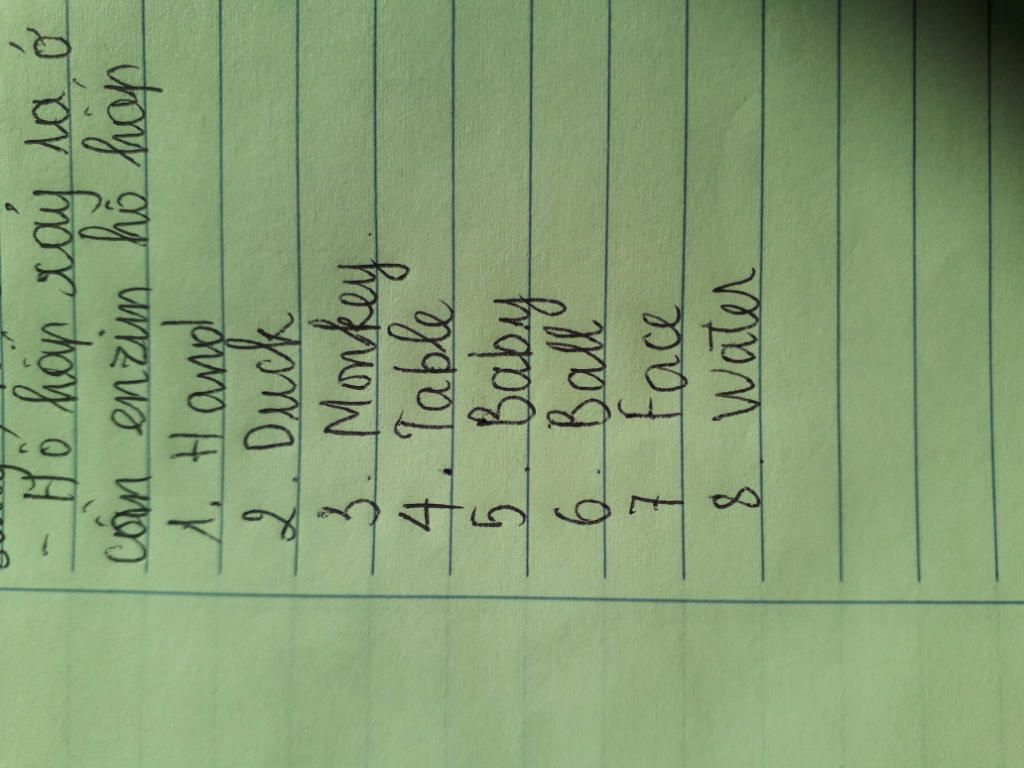 - Hô hấp xảy ra ở
cần enzim hô hấp
1. Hand
2. Duck
3. Monkey
4. Table
5. Baby
6. Ball
7 Face
8. Water